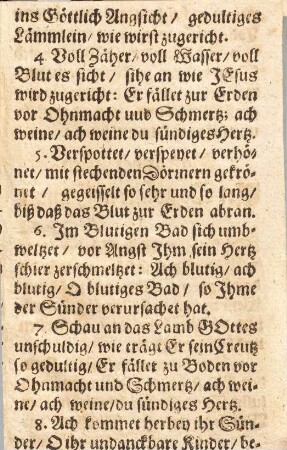 ins Göttlich Angsicht/ gedultiges
Lämmlein/ wie wirst zugericht.
4 Voll Zäher/ voll Wasser/ voll
Blut es sicht/ sihe an wie JEsus
wird zugericht: Er fället zur Erden
vor Ohnmacht uud Schmertz: ach
weine/ ach weine du sündiges Hertz.
5. Verspottet/ verspeyet/ verhö-
net/ mit stechenden Dörnern gekrö-
net/ gegeisselt so sehr und so lang/
biß daß das Blut zur Erden abran.
6. Im Blutigen Bad sich umb-
weltzet/ vor Angst Ihm sein Hertz
schier zerschmeltzet: Ach blutig/ ach
blutig/ O blutiges Bad/ so Ihme
der Sünder verursachet hat.
7. Schau an das Lamb GOttes
unschuldig/ wie trägt Er sein Creutz
so gedultig/ Er fället zu Boden vor
Ohnmacht und Schmertz/ ach wei-
ne/ ach weine/ du sündiges Hertz.
8. Ach kommet herbey ihr Sün-
der/ O ihr undanckbare Kinder/ be-